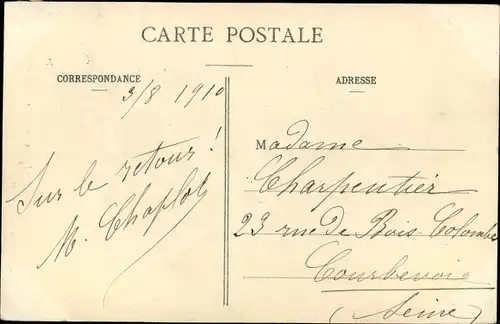 CARTE POSTALE
CORRESPONDANCE
3/8 1910
Sur le retour !
M. Chaplot
ADRESSE
Madame
Charpentier
23 rue de Bois-Colombes
Courbevoie
(Seine)